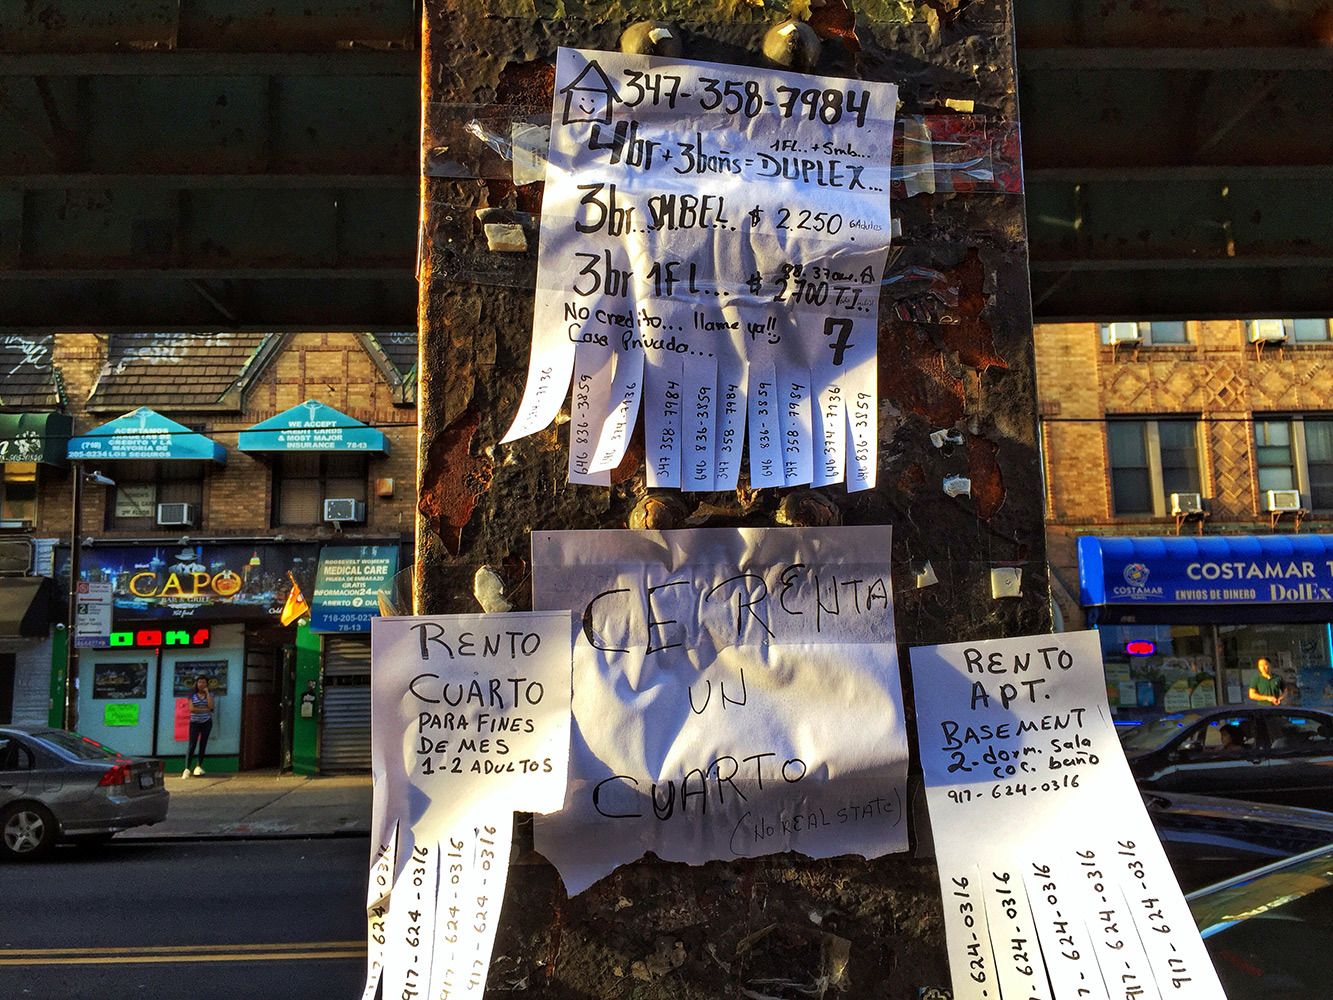 347-358-7984
4br + 3bañs = DUPLEX...
1FL.. + Smb...
3br. SM.BEL... $ 2.250 6 Adultos
3br 1FL... $ 2.700
88. 37 ave.
No credito... llame ya!!
Casa Privada...
7
646 836-3859
347 358-7984
646 836-3859
347 358-7984
646 836-3859
347 358-7984
646 374-7136
646 836-3859
CE RENTA
UN
CUARTO
(NO REAL STATE)
RENTO
CUARTO
PARA FINES
DE MES
1-2 ADULTOS
917-624-0316
917-624-0316
917-624-0316
917-624-0316
RENTO
APT.
BASEMENT
2-dorm. sala
coc. baño
917-624-0316
-624-0316
-624-0316
7-624-0316
917-624-0316
917-624-0316
ACEPTAMOS
TARJETAS DE
CREDITO Y LA
MAYORIA DE
LOS SEGUROS
(718)
205-0234
WE ACCEPT
CREDIT CARDS
& MOST MAJOR
INSURANCE
78-13
CAPO
BAR & GRILL
ROOSEVELT WOMEN'S
MEDICAL CARE
PRUEBA DE EMBARAZO
GRATIS
INFORMACION 24 HORAS
ABIERTO 7 DIAS
718-205-023
78-13
COSTAMAR T
COSTAMAR
ENVIOS DE DINERO DolEx